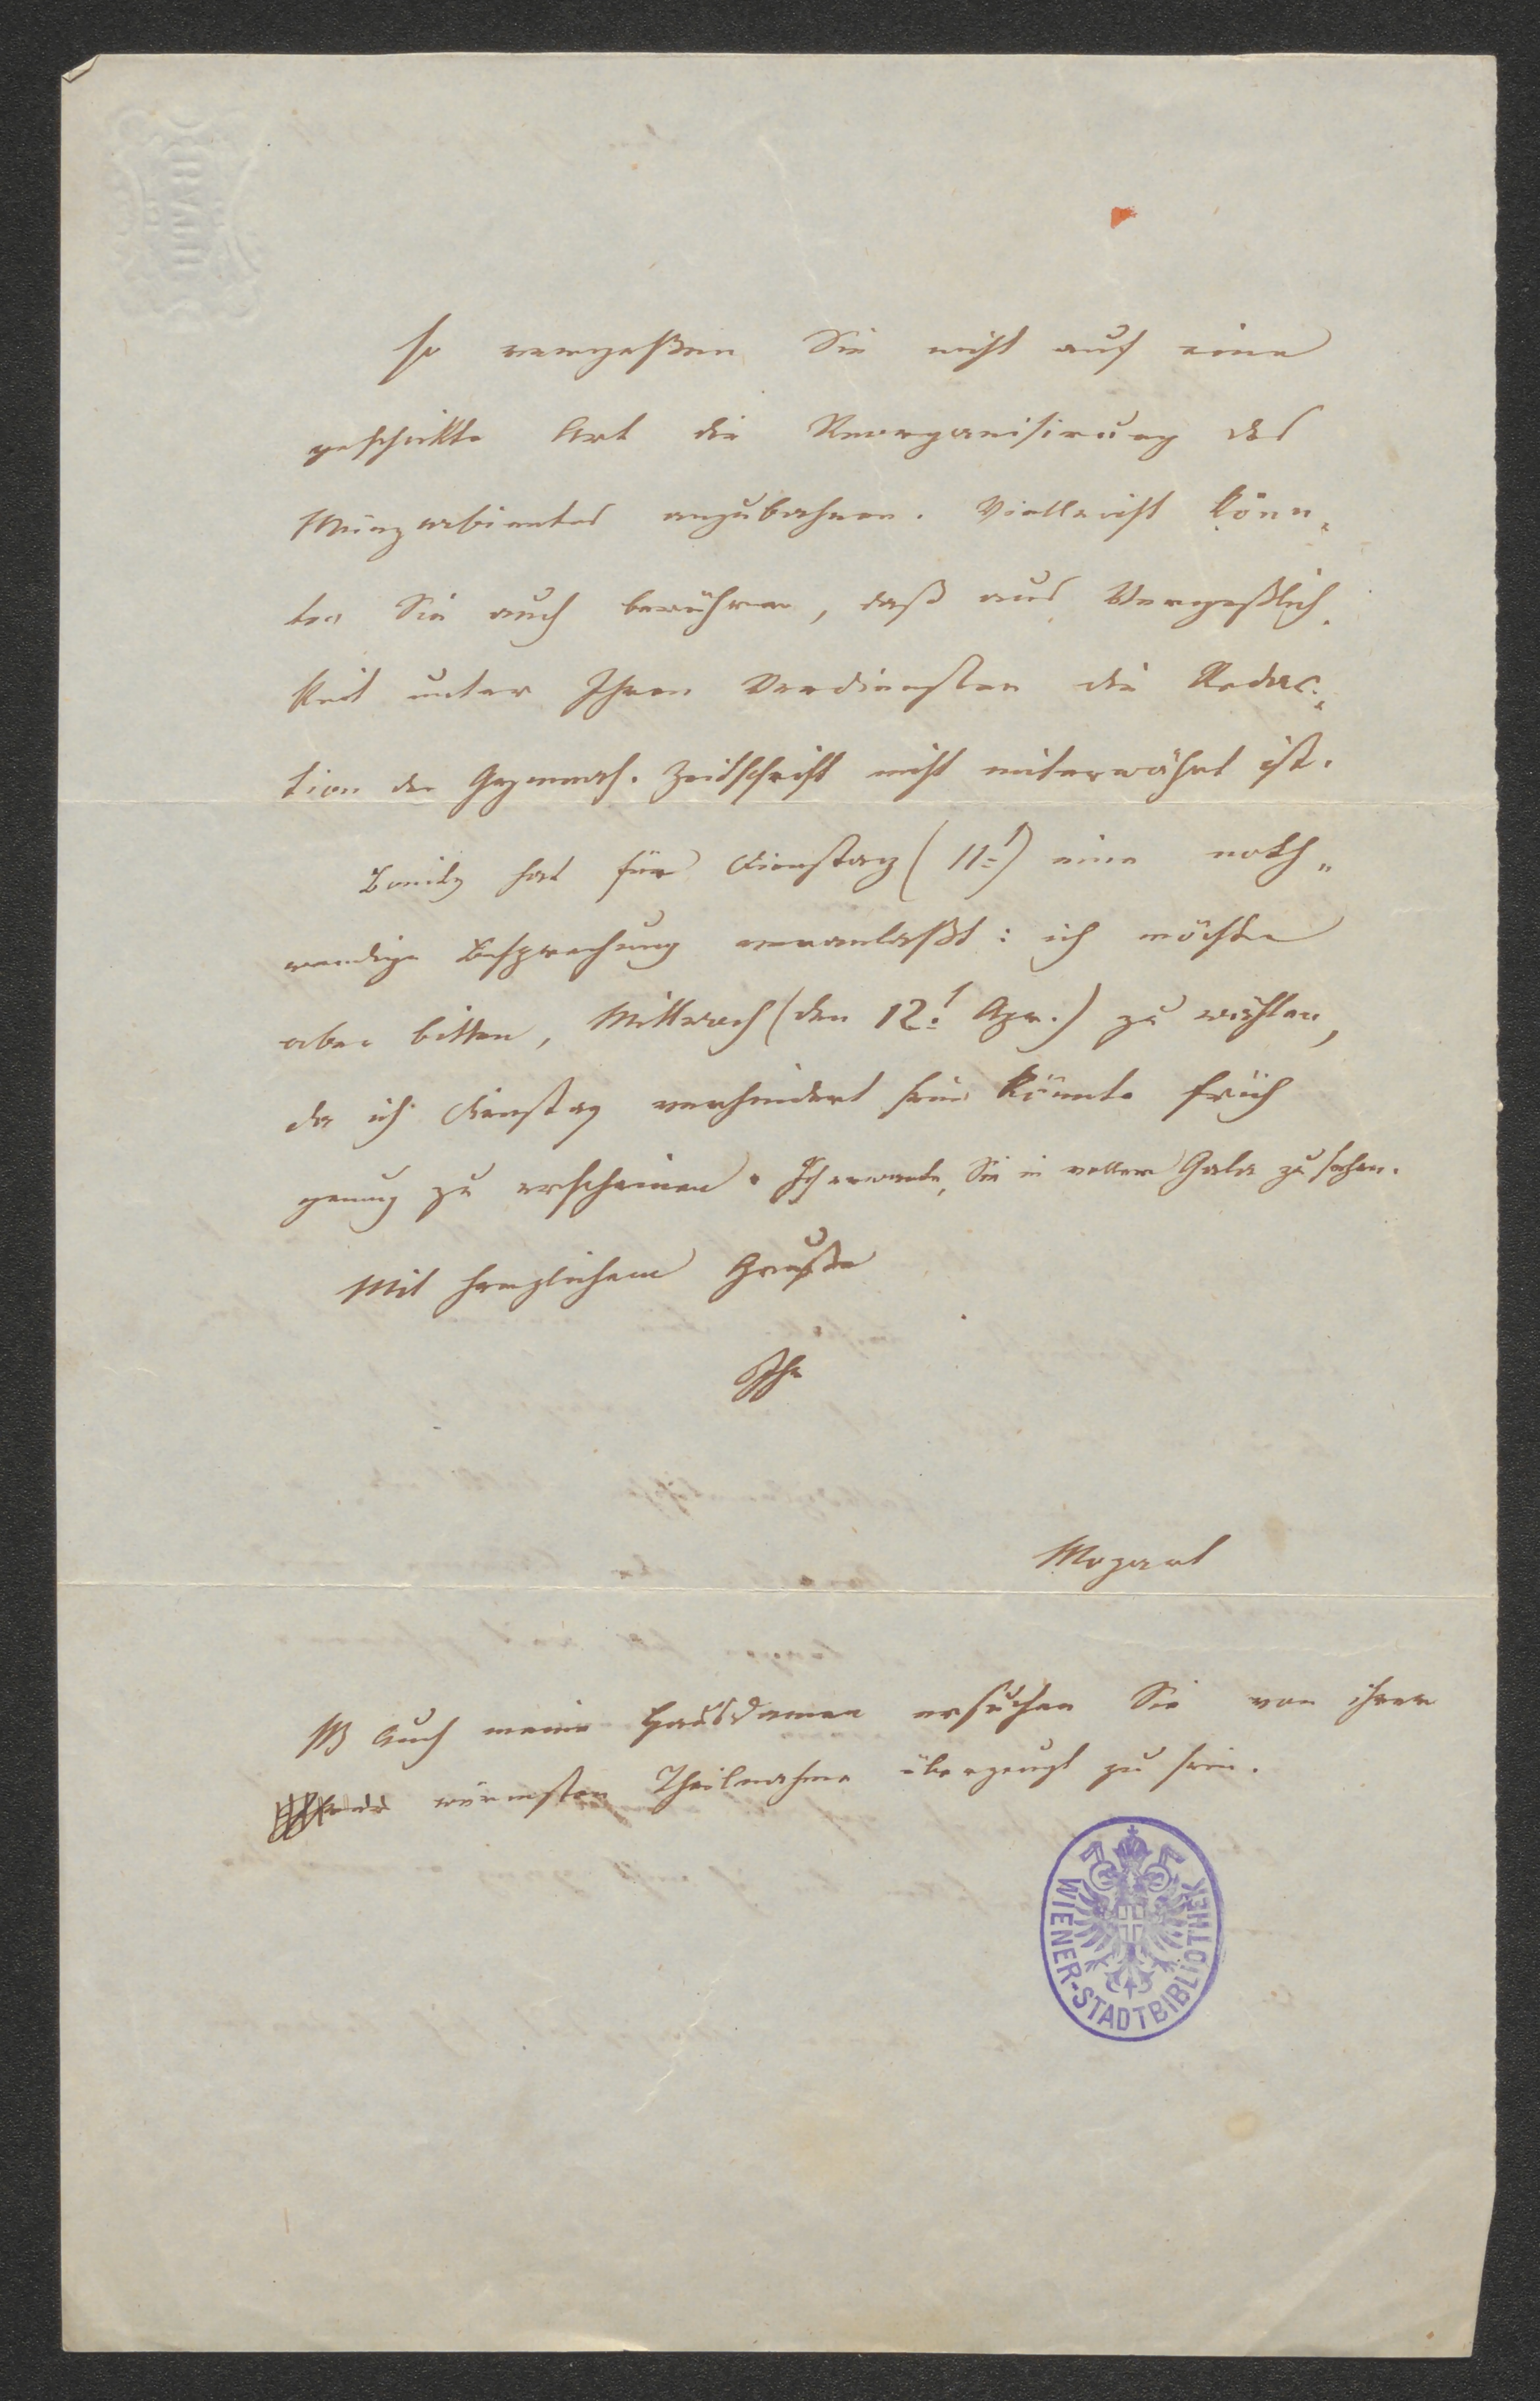 so vergeßen Sie nicht auf eine
geschickte Art die Reorganisirung des
Münzkabinetes anzubahnen. Vielleicht könn„
ten Sie auch berühren, daß aus Vergeßlich„
keit unter Ihren Verdiensten die Redac„
tion der Gymnas. Zeitschrift nicht miterwähnt ist.
Bonitz hat für Dienstag (11=!) eine noth„
wendige Besprechung veranlaßt: ich möchte
aber bitten, Mittwoch (den 12! Apr.) zu wählen,
da ich Dienstag verhindert sein könnte früh
genug zu erscheinen. Ich erwarte, Sie in voller Gala zu sehen.
Mit herzlichem Gruße
Ihr
Mozart
NB Auch meine Hausdamen ersuchen Sie von ihrer
wärmsten Theilnahme überzeugt zu sein.
WIENER-STADTBIBLIOTHEK